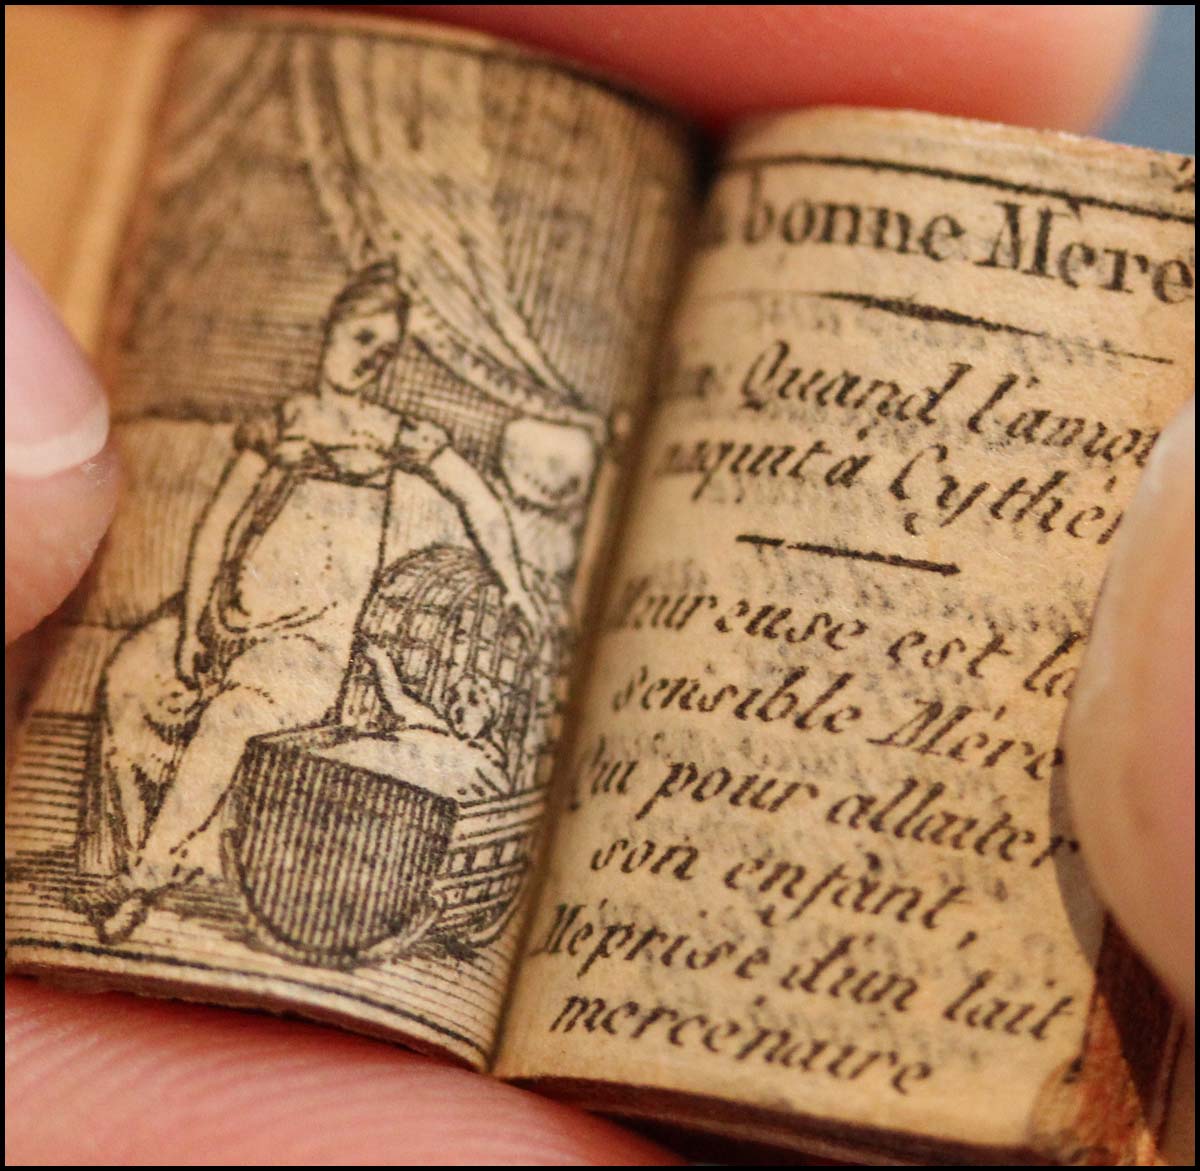 bonne Mère
Quand l'amou
naquit à Cythér
Heureuse est la
sensible Mére
Qui pour allaiter
son enfant,
Méprise d'un lait
mercénaire